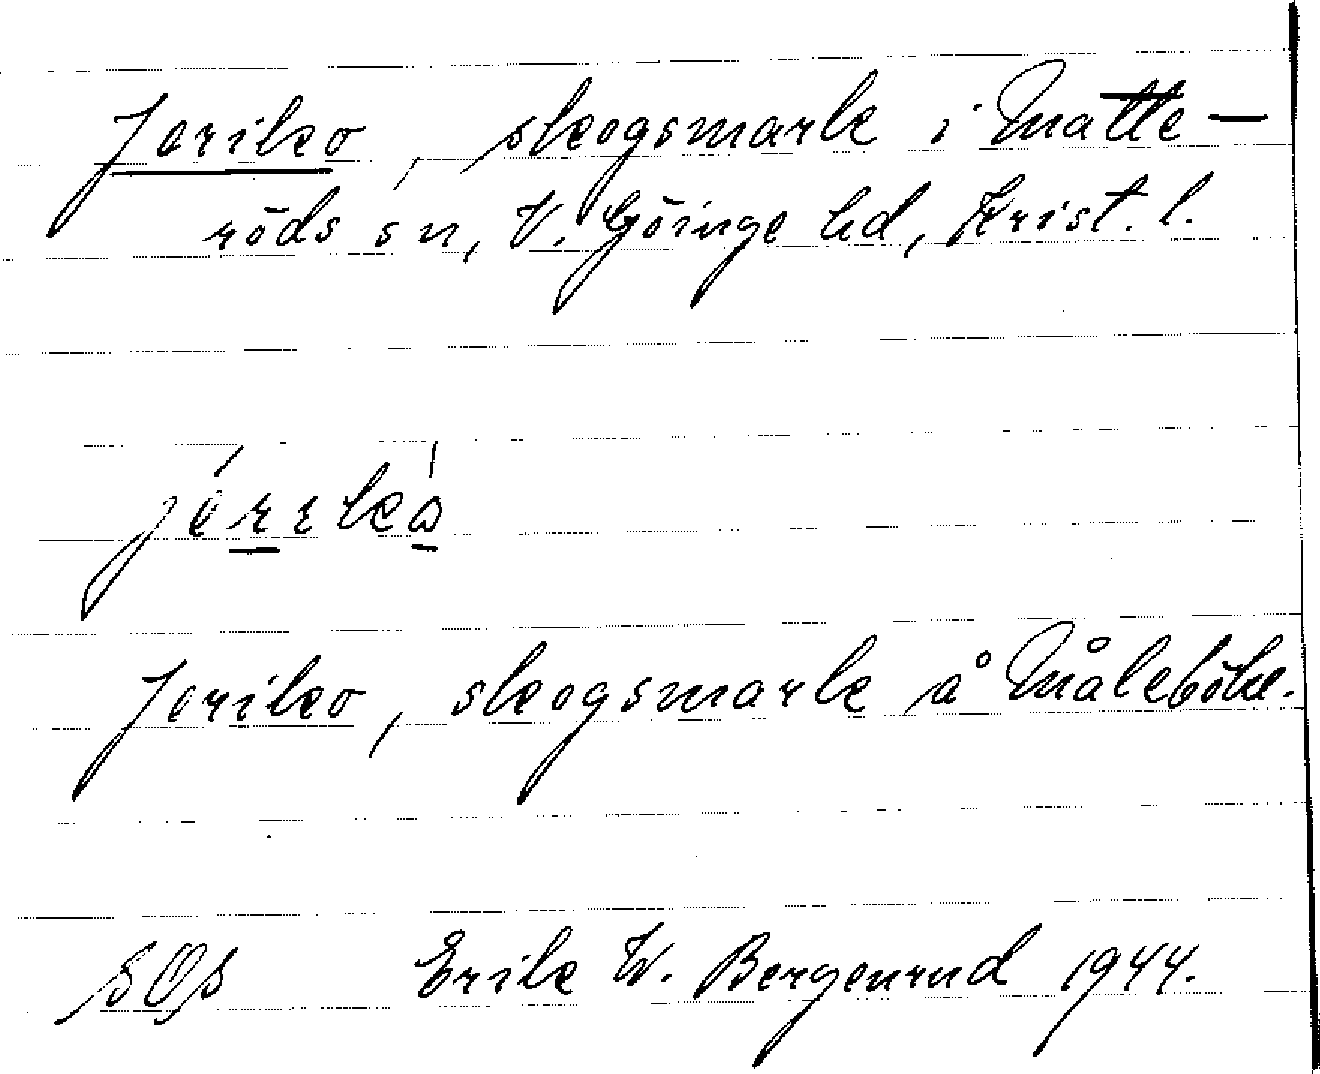 Jeriko, skogsmark i Matte-
röds sn, V. Göinge hd, Krist. l.
Jeriko, skogsmark å Måleböke.
SOS Erik W. Bergenrud 1944.